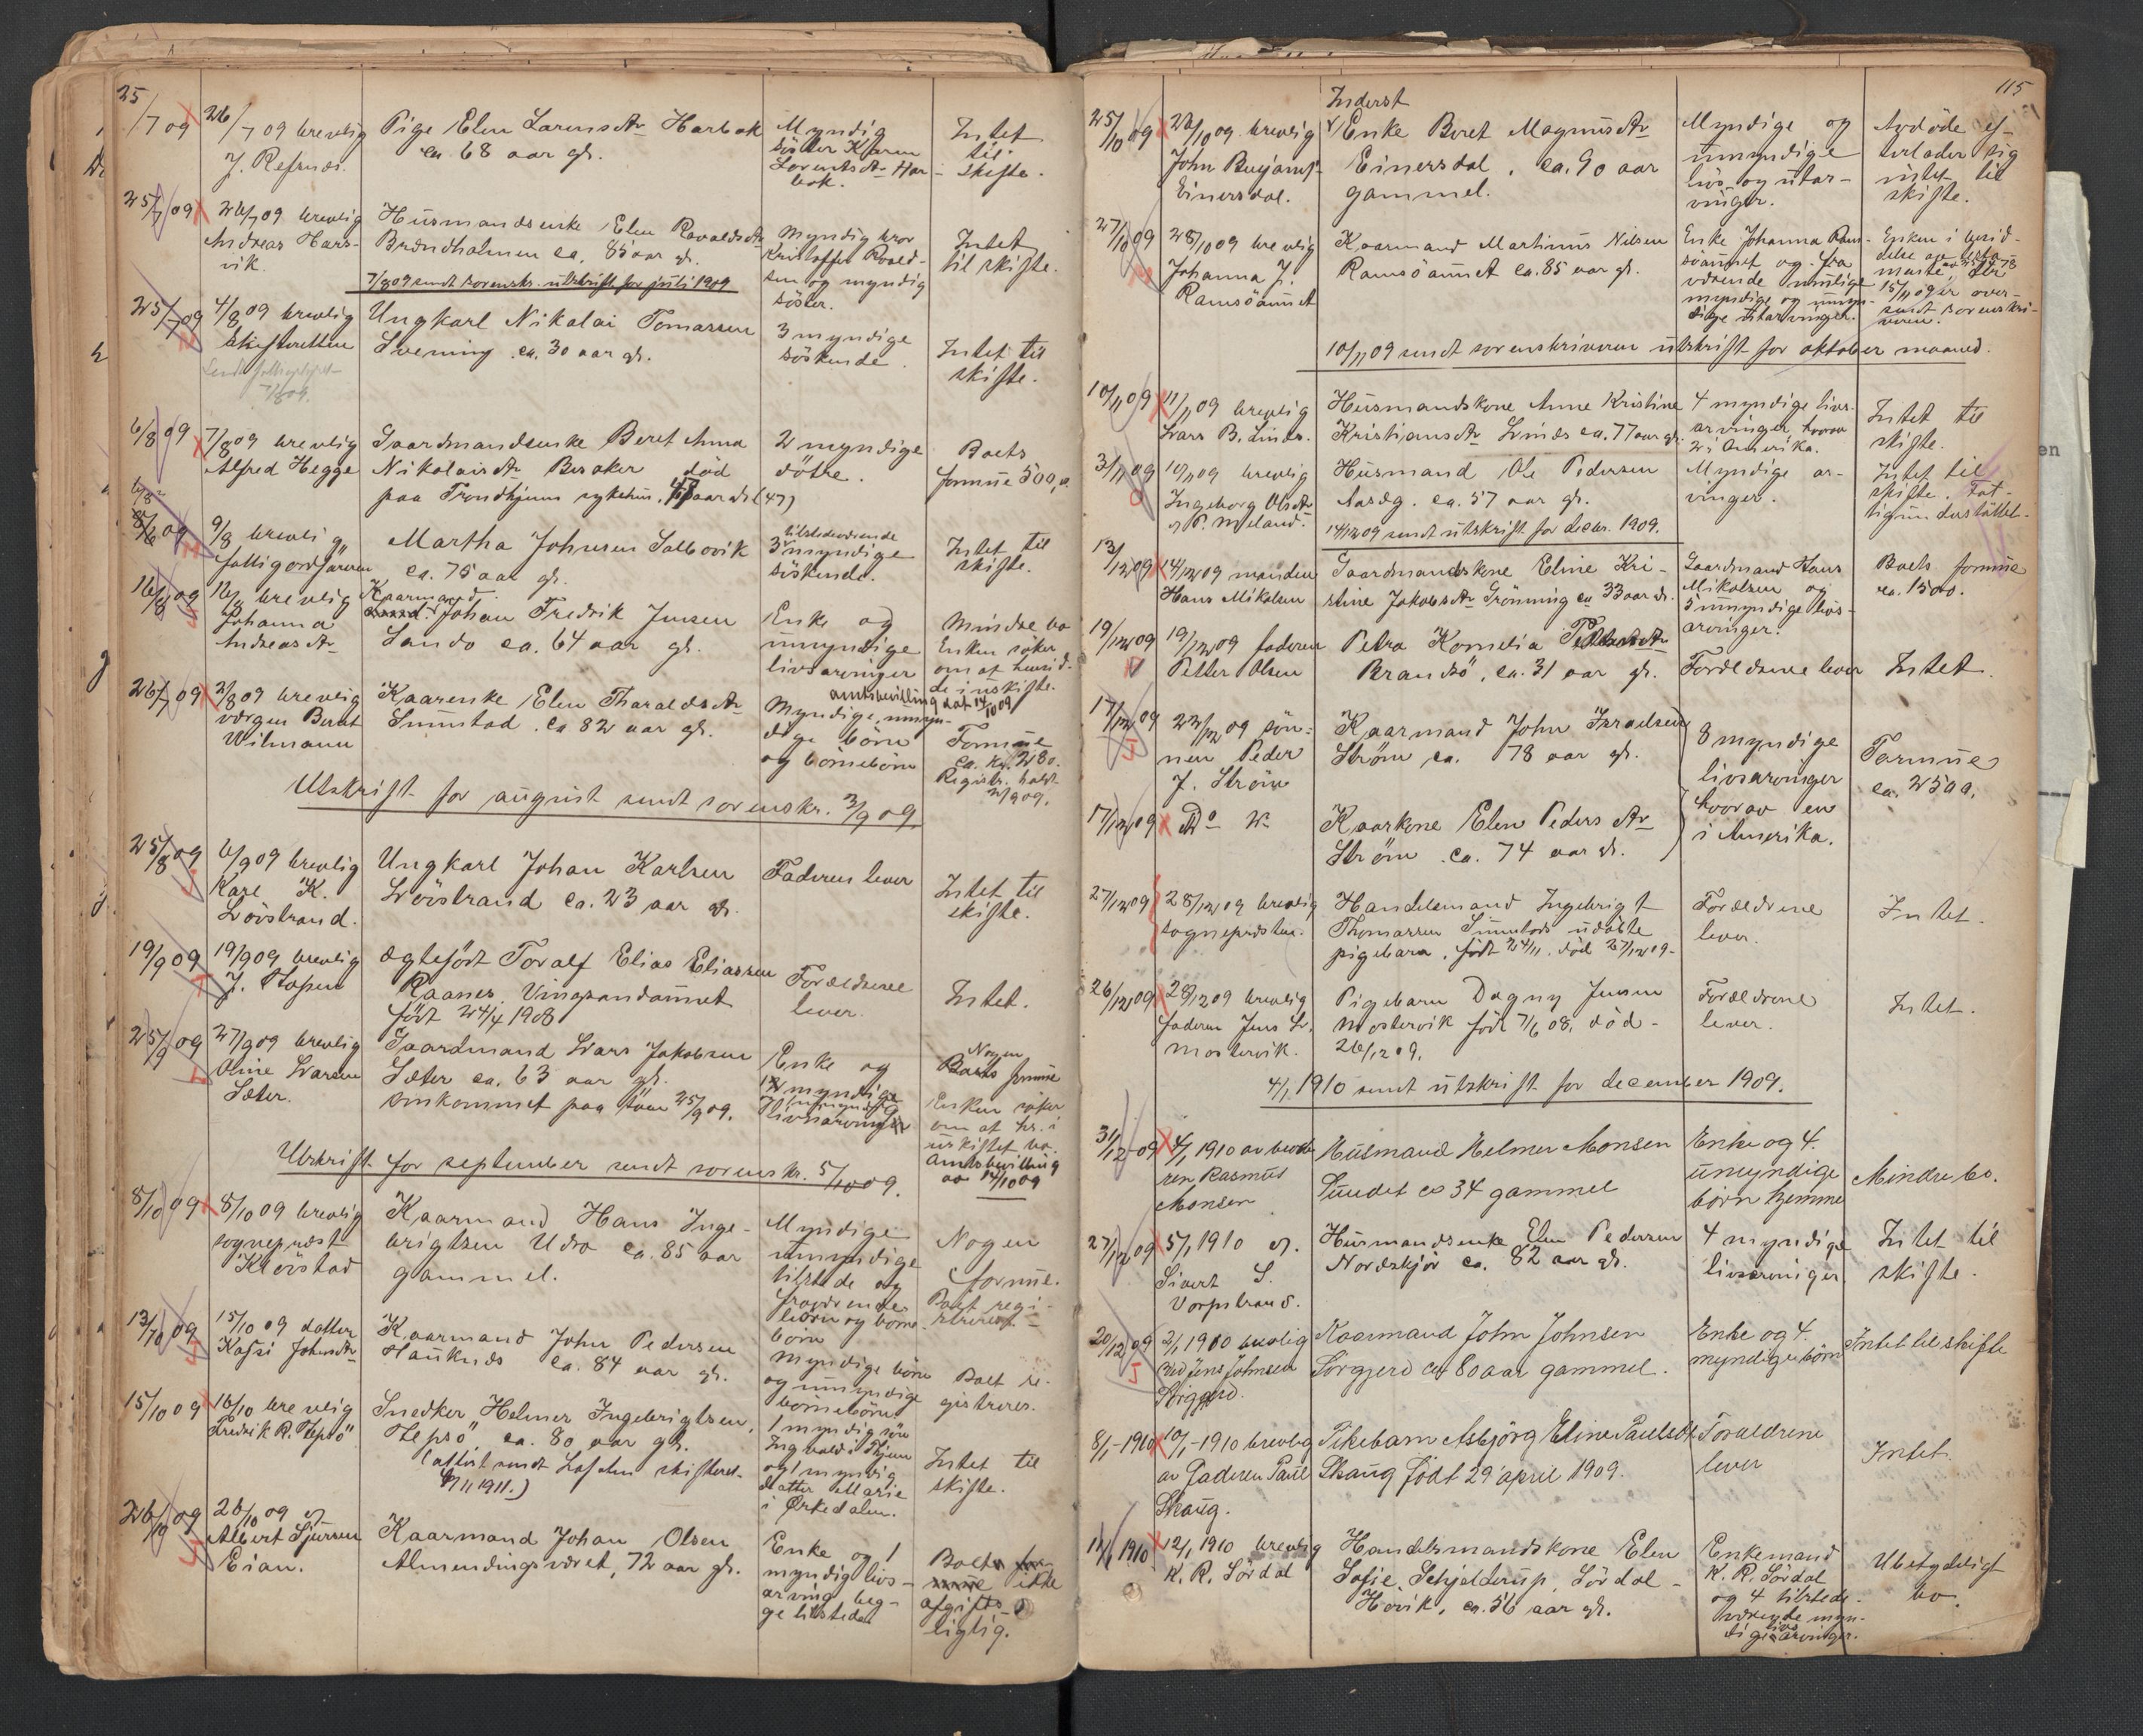 25/7 09
26/7 09 brevlig
J. Refsnes.
Pige Elen Larensdtr Harbak
ca. 68 aar gl.
Myndig
söster Karen
Lorentsdtr Har-
bak.
Intet
til
skifte.
25/7 09
26/7 09 brevlig
Andreas Hars-
vik.
Husmandsenke Elen Rovaldsdtr
Brændholmen ca. 85 aar gl.
Myndig bror
Kristoffer Roald-
sen og myndig
söster.
Intet
til skifte.
7/8 09 sendt sorenskr. utskrift for juli 1909
25/7 09
4/8 09 brevlig
Skifteretten
Ungkarl Nikolai Tomassen
Svenning ca. 30 aar gl.
3 myndige
söskende.
Intet til
skifte.
6/8 09
7/8 09 brevlig
Alfred Hegge
Gaardmandsenke Beret Anna
Nikolaisdtr Besaker död
paa Trondhjems sykehus, aar gl. (47)
2 myndige
dötre.
Boets
formue 500,
9/8 brevlig
fattigordföreren
Martha Johnsen Salbovik
ca. 75 aar gl.
tilstedeværende
3 myndige
söskende.
Intet til
skifte.
16/8 09
brevlig
Johanna
Andreasdtr
Kaarmand
Johan Fredrik Jensen
Sando ca. 64 aar gl.
Enke og
umyndige
livsarvinger
Mindre bo
Enken söker
om at hensid-
de i uskifte.
amtsbevilling dat 14/10 09
26/7 09
2/8 09 brevlig
værgen Bernt
Wilmann
Kaarenke Elen Tharaldsdtr
Sumstad. ca 82 aar gl.
Myndige, umyn-
dige börn
og börnebörn
Formue
ca. Kr. 280.
Registr. holdt
2/9 09.
Utskrift for august sendt sorenskr. 3/9 09.
25/8 09
6/9 09 brevlig
Karl K.
Lövstrand.
Ungkarl Johan Karlsen
Lövstrand ca. 23 aar gl.
Faderen lever
Intet til
skifte.
19/9 09
19/9 09 brevlig
J. Hopen
Ægtefödt Toralf Elias Eliassen
Raanes, Vingsandaunet
födt 24/4 1908
Forældrene
lever.
Intet.
25/9 09
27/9 09 brevlig
Oline Larsen
Sæter.
Gaardmand Lars Jakobsen
Sæter ca. 63 aar gl.
omkommet paa sjöen 25/9 09.
Enke og
myndige
livsarvinger
Nogen
formue
Enken söker
om at hs. i
uskiftet bo.
Amtsbevilling
av 14/10 09
Utskrift for september sendt sorenskr. 5/10 09.
8/10 09
8/10 09 brevlig
sogneprest
Klövstad
Kaarmand Hans Inge-
brigtsen Udro ca. 85 aar
gammel.
Myndige
umyndige
tilstede og
fraværende
börn og börne-
börn
Nogen
formue.
Boet regi-
streret
13/10 09
15/10 09 datter
Kasji Johnsdtr
Kaarmand John Pedersen
Hauknes ca. 84 aar gl.
Myndige börn
og umyndige
börnebörn
Boet re-
gistreres.
15/10 09
16/10 brevlig
Fredrik R. Hepsö
Snedker Helmer Ingebrigtsen,
Hepsö ca. 80 aar gl.
1 myndig sön
Ingvald i Thjem
og 1 myndig
datter Marie
i Örkedalen.
Intet til
skifte.
26/10 09
28/10 09 v.
Albert Sjursen
Eian.
Kaarmand Johan Olsen
Almendingsværet, 72 aar gl.
Enke og 1
myndig livs-
arving beg-
ge tilstede
Boet
ikke
afgifts-
pligtig.
115
25/10 09
26/10 09 brevlig
John Benjams.
Einersdal.
Inderst
Enke Beret Magnusdtr
Einersdal, ca. 90 aar
gammel.
Myndige og
umyndige
livs- og utar-
vinger.
Avdöde ef-
terlader sig
intet til
skifte.
27/10 09
28/10 09 brevlig
Johanna J.
Ramsöaunet
Kaarmand Martinus Nilsen
Ramsöaunet ca. 85 aar gl.
Enke Johanna Ram-
söaunet og fra-
værende mulige
myndige og umyn-
dige utarvinger.
Enken i besid-
delse av testa-
mente
15/11 09 er over-
sendt sorenskri-
veren.
10/11 09 sendt sorenskriveren utskrift for oktober maaned.
10/11 09
11/11 09 brevlig
Lars B. Linds.
Husmandskone Anne Kristine
Kristiansdtr Linds ca. 77 aar gl.
4 myndige livs-
arvinger hvorav
2 i Amerika.
Intet til
skifte.
3/11 09
10/11 09 brevlig
Ingeborg Olsdtr
v. P. Meland.
Husmand Ole Pedersen
Aasdg. ca. 57 aar gl.
Myndige ar-
vinger.
Intet til
skifte. Fat-
tigunderstöttet.
14/12 09 sendt utskrift for decbr. 1909.
13/12 09
14/12 09 manden
Hans Mikalsen
Gaardmandskone Eline Kri-
stine Jakobsdtr Grönning ca 33 aar gl.
Gaardmand Hans
Mikalsen og
5 umyndige livs-
arvinger.
Boets formue
ca. 1500.
19/12 09
19/12 09 faderen
Petter Olsen
Petra Kornelia Pettersdtr
Brandsö, ca. 31 aar gl.
Forældrene lever
Intet.
17/12 09
22/12 09 sön-
nen Peder
J. Ström
Kaarmand John Israelsen
Ström ca. 78 aar gl.
8 myndige
livsarvinger
hvorav en
i Amerika.
Formue
ca. 2500.
17/12 09
Do
Kaarkone Elen Pedersdtr
Ström. ca. 74 aar gl.
27/12 09
28/12 09 brevlig
sogneprsten.
Handelsmand Ingebrigt
Thomassen Sumstads udöbte
pigebarn, födt 24/11. död 27/12 09.
Forældrene
lever.
Intet.
26/12 09
28/12 09 brevlig
faderen Jens L.
Mostervik.
Pigebarn Dagny Jensen
Mostervik född 7/6 08, död
26/12 09.
Forældrene
lever.
Intet.
4/1 1910 sendt utskrift for december 1909.
31/12-09
4/1 1910 av brode-
ren Rasmus
Monsen
Husmand Helmer Monsen
Sundet ca 34 gammel
Enke og 4.
umyndige
börn hjemme
Mindre bo.
27/12 09
5/1 1910 v.
Sivert S.
Vorpstrand.
Husmandsenke Elen Pedersen
Nordskjör ca. 82 aar gl.
4 myndige
livsarvinger.
Intet til
skifte.
20/12 09
2/1 1910 brevlig
ved Jens Johnsen
Sörgjerd.
Kaarmand John Johnsen
Sörgjerd ca 80 aar gammel.
Enke og 4.
myndige börn
Intet til skifte
8/1-1910
10/1-1910 brevlig
av Faderen Paul
Skaug.
Pikebarn Asbjörg Eline Paulsdtr
Skaug födt 29 april 1909.
Foraldrene
lever
Intet.
11/1 1910
12/1 1910 brevlig
K. R. Sördal
Handelsmandskone Elen
Sofie Schjelderup Sördal
Hovik, ca. 56 aar gl.
Enkemand
K. R. Sördal
og 4 tilstede-
værende myn-
dige livsarvinger.
Ubetydeligt
bo.